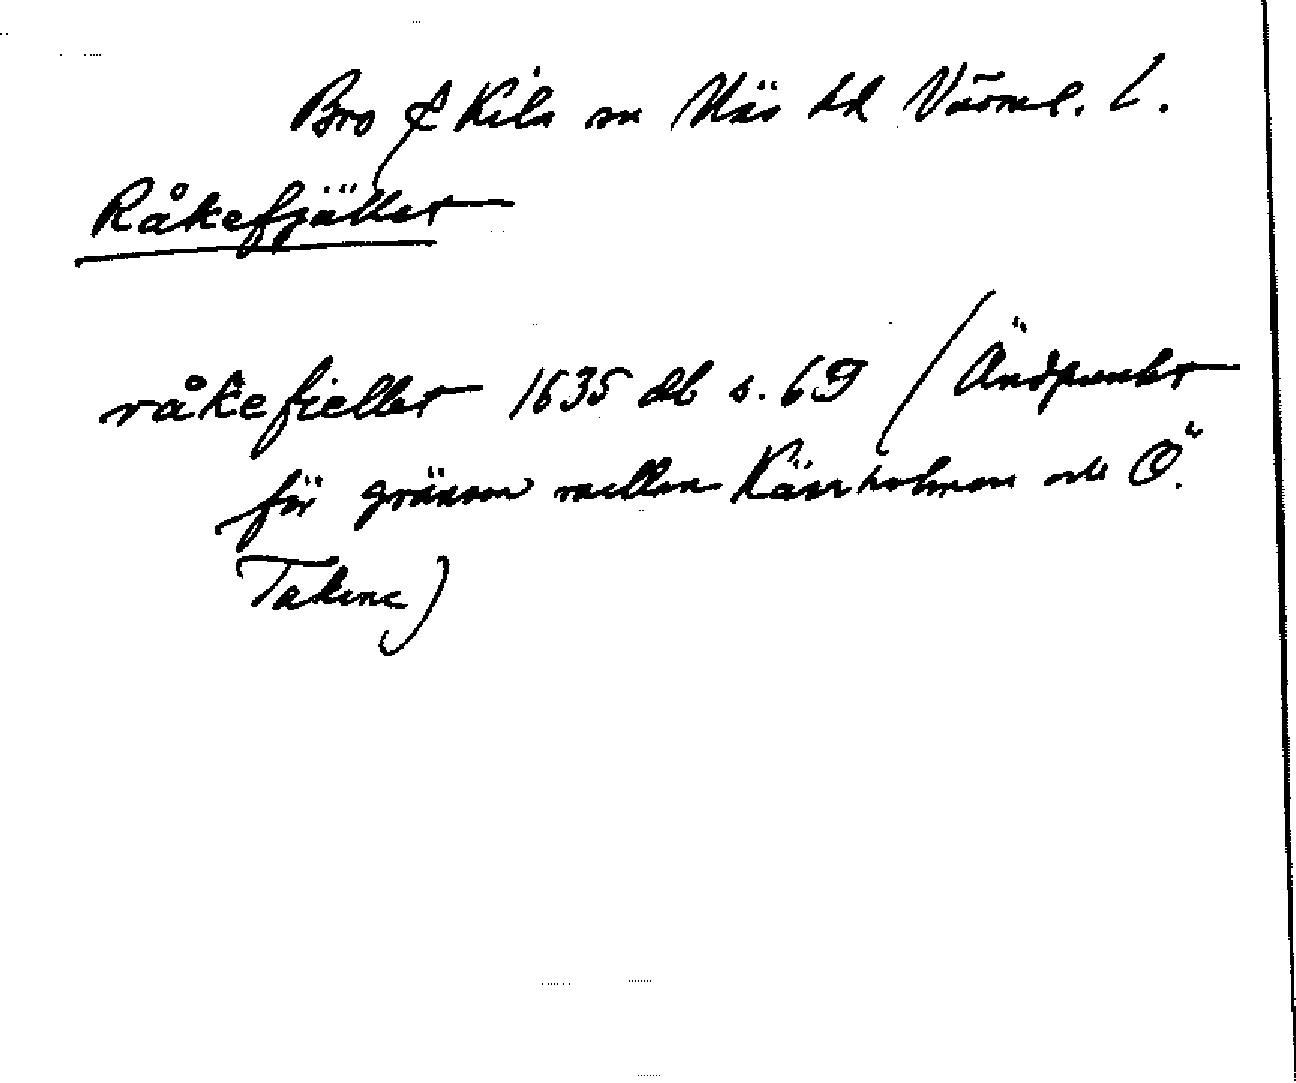 Bro & Kila sn Näs hd Värml. L.
Råkefjället
råkefiellet 1635 db s. 69 (Ändpunkt
för gränsen mellan Kärrholmen och Ö.
Takene)